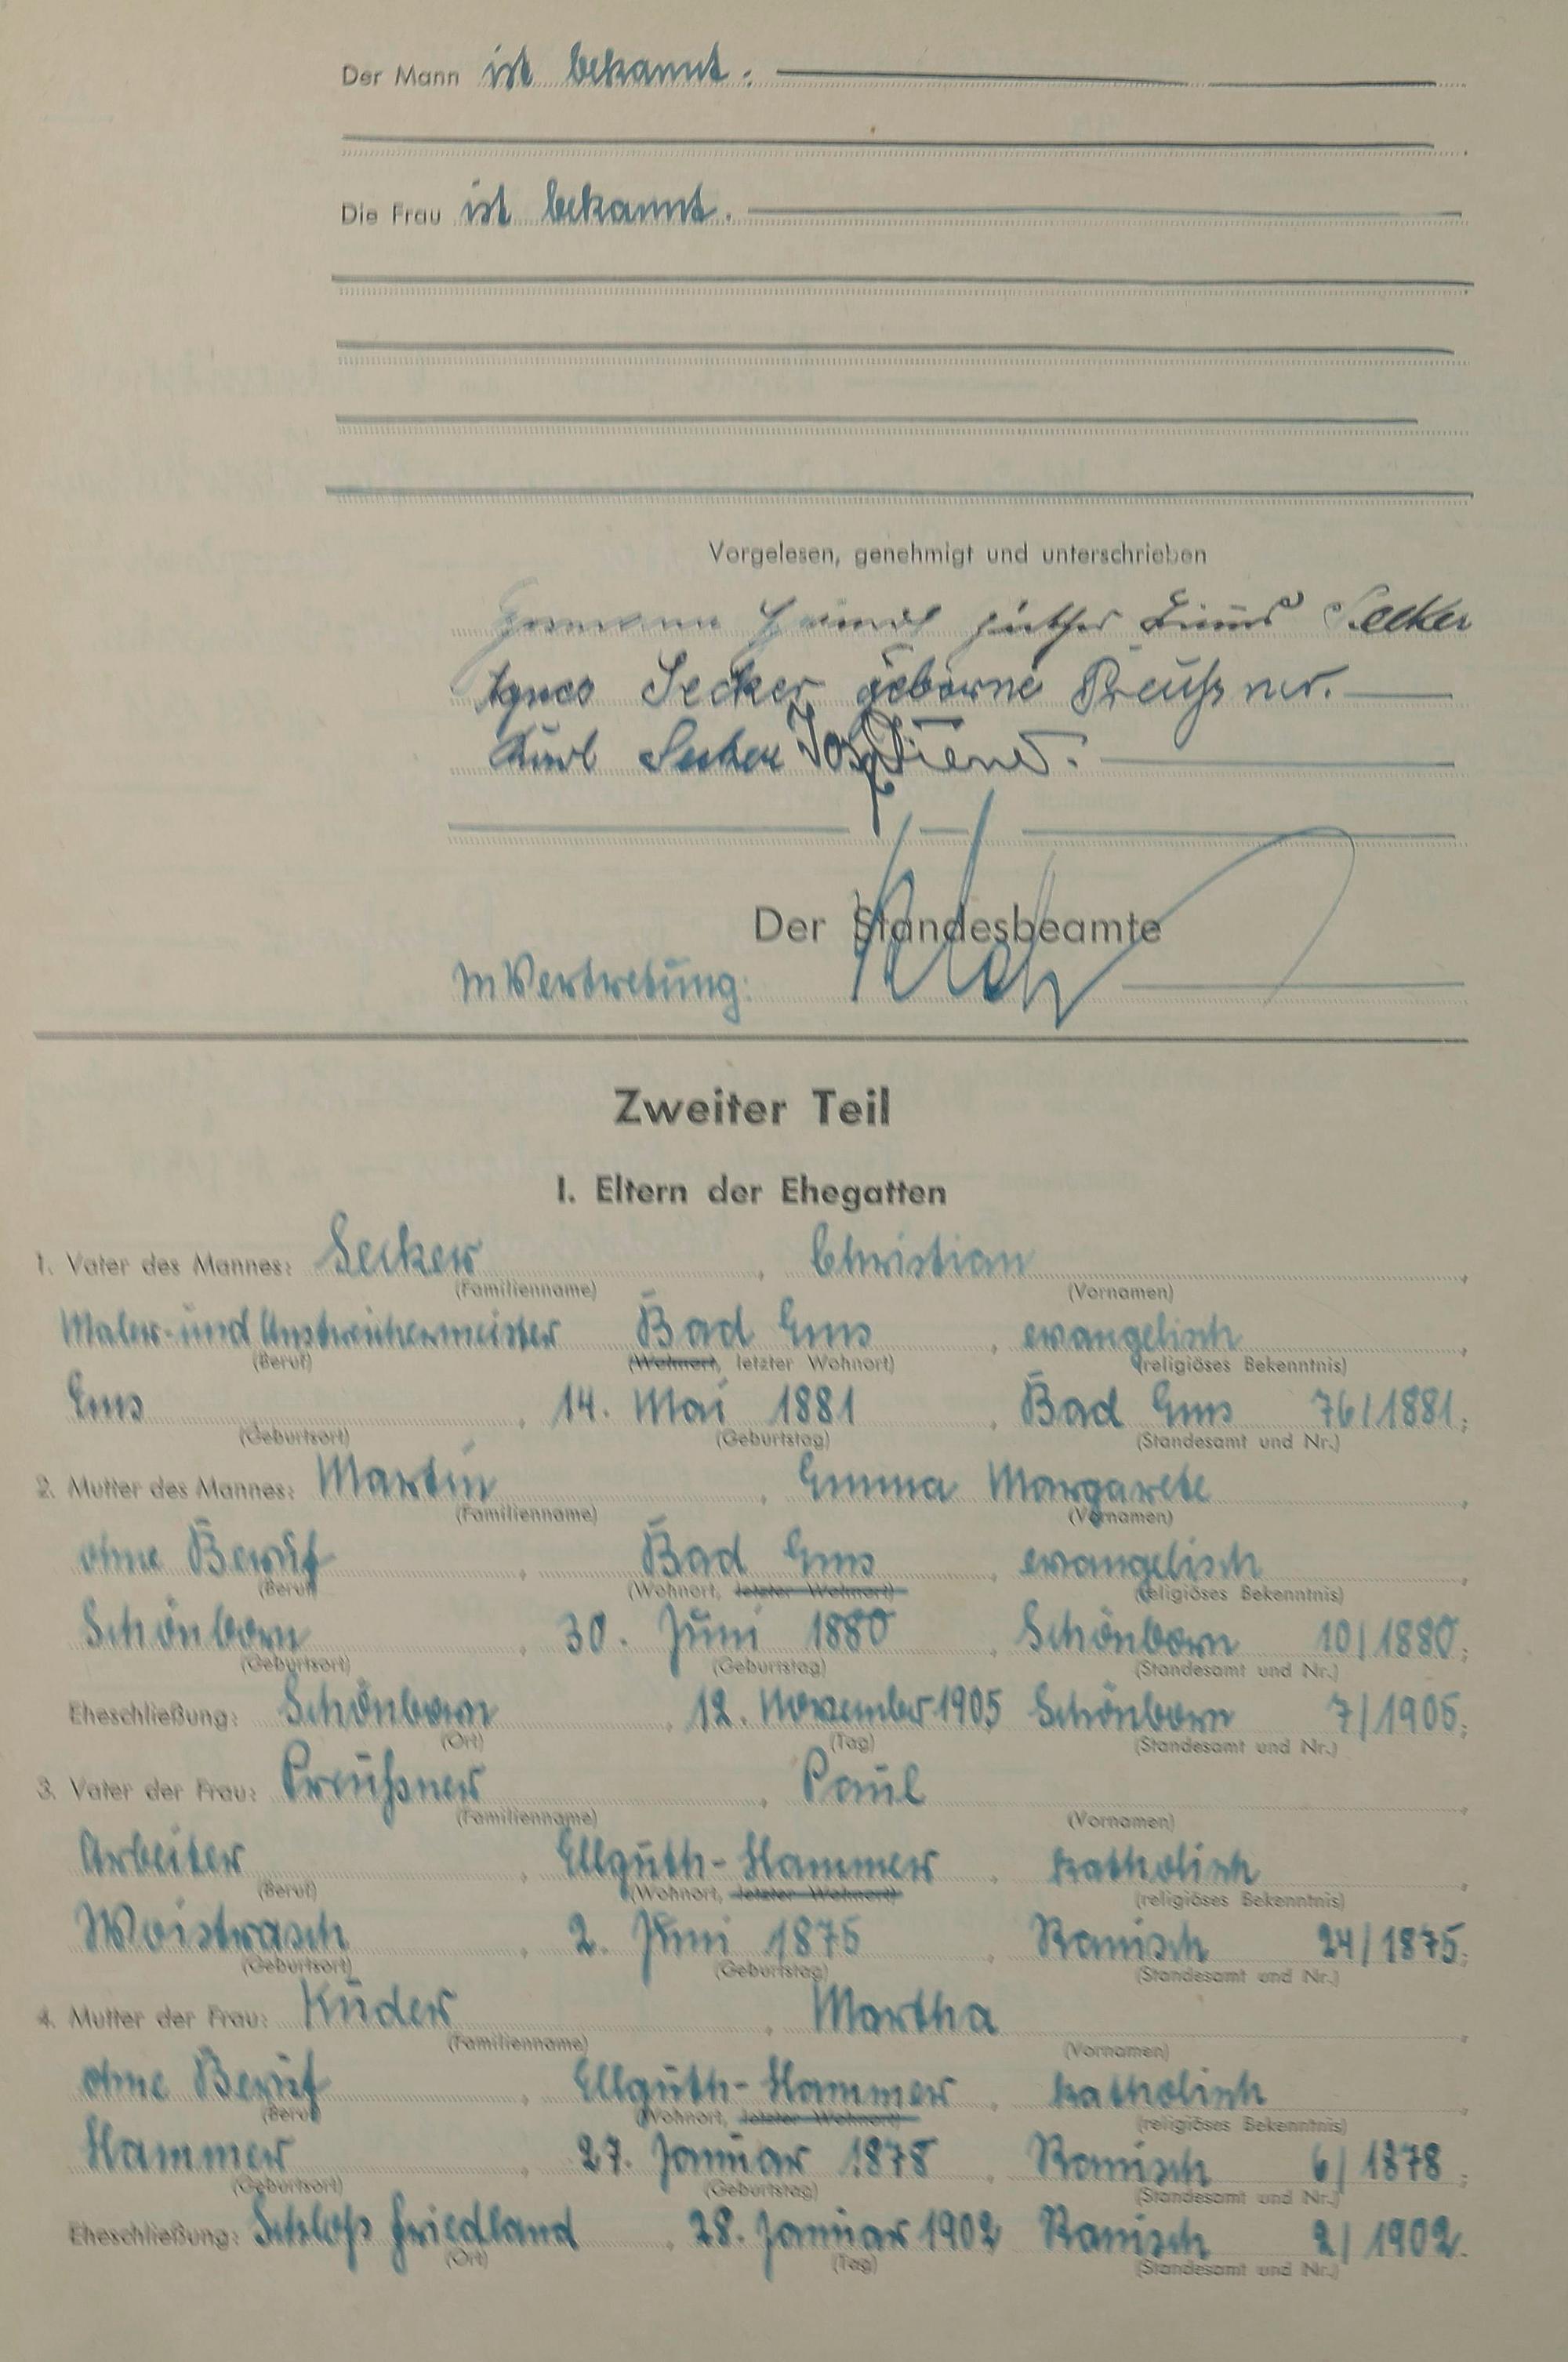 Der Mann ist bekannt.
Die Frau ist bekannt.
Vorgelesen, genehmigt und unterschrieben
Hermann Heinrich Günther Linus Secker
Agnes Secker geborne Preußner.
Karl Secker Jos. Diener.
Der Standesbeamte
In Vertretung:
Zweiter Teil
I. Eltern der Ehegatten
1. Vater des Mannes: Secker, Christian,
(Familienname) (Vornamen)
Maler- und Anstreichermeister Bad Ems, evangelisch,
(Beruf) (Wohnort, letzter Wohnort) (religiöses Bekenntnis)
Ems, 14. Mai 1881, Bad Ems 76/1881;
(Geburtsort) (Geburtstag) (Standesamt und Nr.)
2. Mutter des Mannes: Martin, Emma Margarete,
(Familienname) (Vornamen)
ohne Beruf, Bad Ems, evangelisch,
(Beruf) (Wohnort, letzter Wohnort) (religiöses Bekenntnis)
Schönborn, 30. Juni 1880, Schönborn 10/1880;
(Geburtsort) (Geburtstag) (Standesamt und Nr.)
Eheschließung: Schönborn, 12. November 1905 Schönborn 7/1905;
(Ort) (Tag) (Standesamt und Nr.)
3. Vater der Frau: Preußner, Paul,
(Familienname) (Vornamen)
Arbeiter, Ellguth-Hammer, katholisch,
(Beruf) (Wohnort, letzter Wohnort) (religiöses Bekenntnis)
Woistrasch, 2. Juni 1875, Ramisch 24/1875;
(Geburtsort) (Geburtstag) (Standesamt und Nr.)
4. Mutter der Frau: Kuder, Martha,
(Familienname) (Vornamen)
ohne Beruf, Ellguth-Hammer, katholisch,
(Beruf) (Wohnort, letzter Wohnort) (religiöses Bekenntnis)
Hammer, 27. Januar 1878, Ramisch 6/1878;
(Geburtsort) (Geburtstag) (Standesamt und Nr.)
Eheschließung: Schloß Friedland, 28. Januar 1902 Ramisch 2/1902.
(Ort) (Tag) (Standesamt und Nr.)